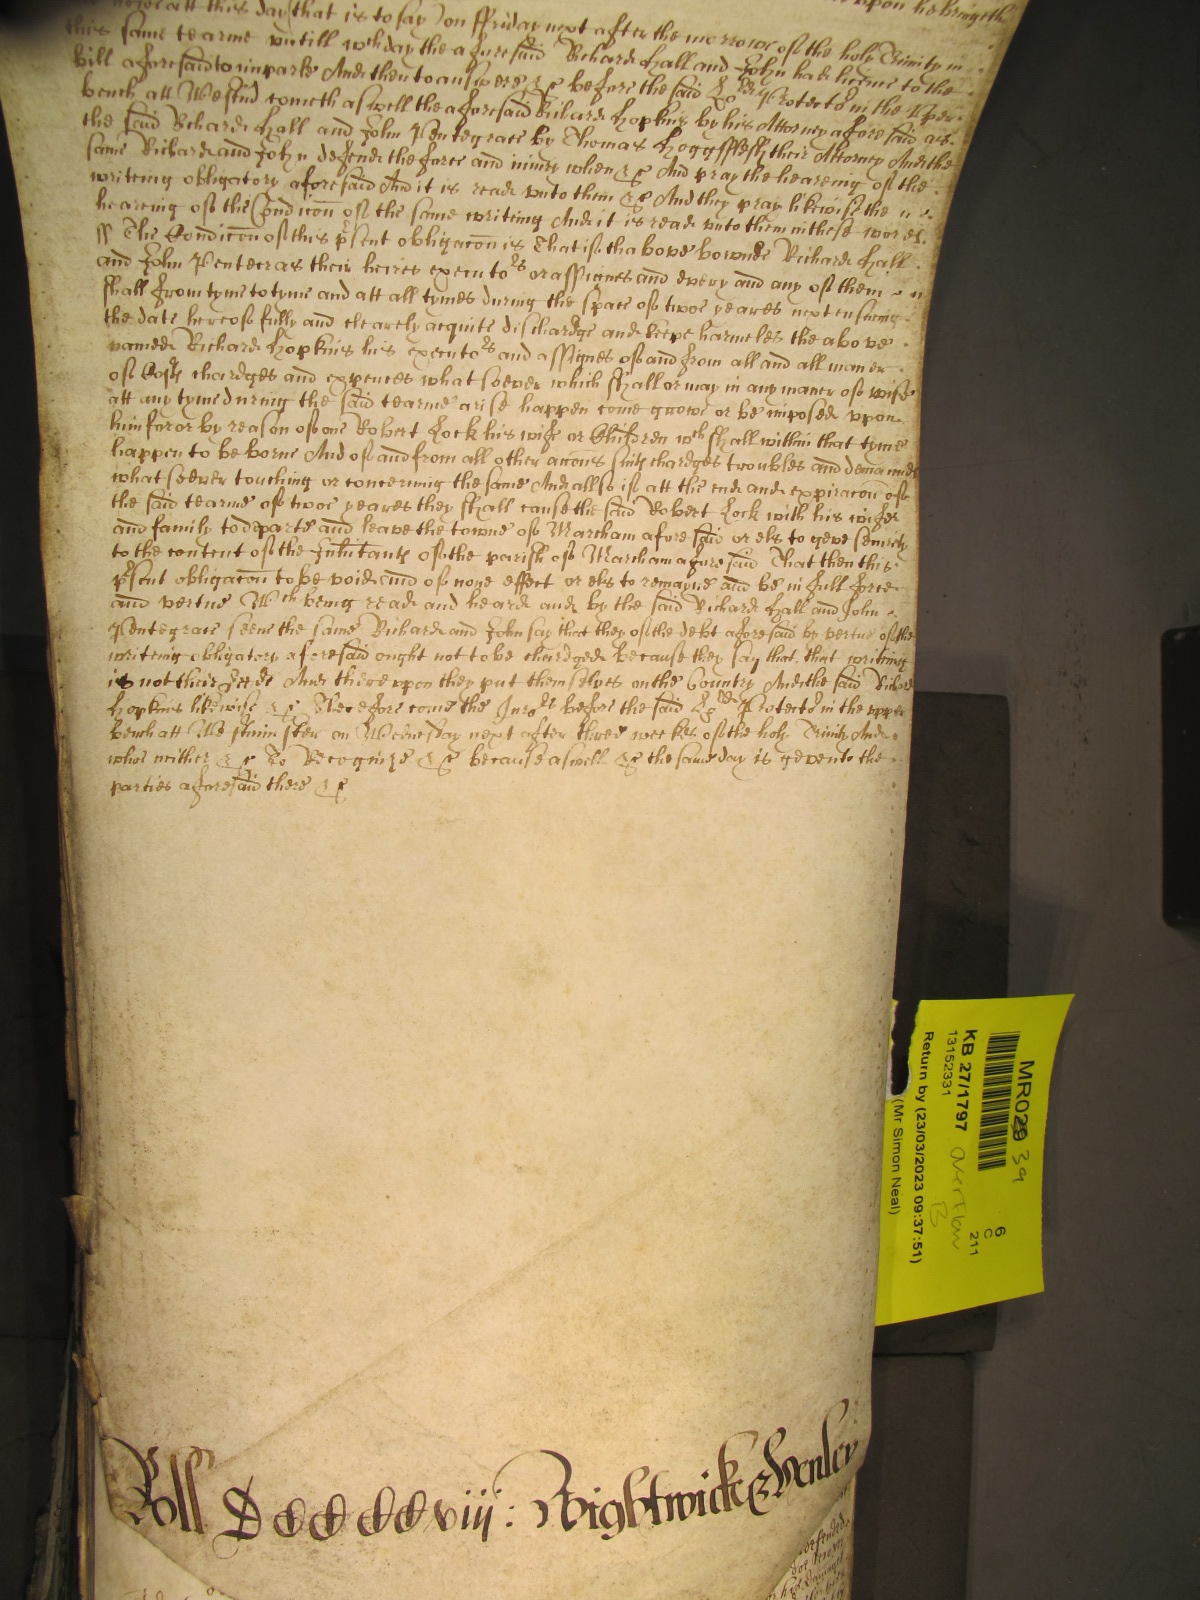 att this day (that is to say) on ffriday next after the morrowe of the holy Trinity in
this same tearme untill wch day the aforesaid Richard Hall and John had licence to the
bill aforesaid to imparle And then to answere &c before the said Lord Protector in the upper
bench att Westm̃ cometh aswell the aforesaid Richard Hopkins by his Attorney aforesaid as
the said Richard Hall and John Pentegrace by Thomas Hoggfflesh their Attorney And the
same Richard and John defend the force and iniury when &c And pray the heareing of the
writeing obligatory aforesaid And it is read unto them &c And they pray likewise the
heareing of the Condic̃on of the same writeing And it is read unto them in these wordes
ff The Condic̃on of this p̃sent obligac̃on is That if thabove bownde Richard Hall
and John Pentecras their heires executors or assignes and every and any of them
shall from tyme to tyme and att all tymes during the space of twoe yeares next ensueing
the date hereof fully and clearely acquite dischardge and keepe harmeles the above
named Richard Hopkins his executors and assignes of and from all and all maner
of Costs chardges and expences whatsoever which shall or may in any maner of wise
att any tyme during the said tearme arise happen come growe or be imposed uppon
him for or by reason of one Robert Lock his wife or Children wch shall within that tyme
happen to be borne And of and from all other acc̃ons suits chardges troubles and demaundes
whatsoever touching or concerning the same And allso if att the end and expirac̃on of
the said tearme of twoe yeares they shall cause the said Robert Lock with his wife
and family to departe and leave the towne of Marcham aforesaid or els to geve security
to the content of the Inhitants of the parish of Marcham aforesaid That then this
p̃sent obligac̃on to be voide and of none effect or els to remayne and be in full force
and vertue Wch being read and heard and by the said Richard Hall and John
Pentegrace seene the same Richard and John say that they of the debt aforesaid by vertue of the
writeing obligatory aforesaid ought not to be chardged because they say that that writeing
is not their deede And thereuppon they put themselves on the Country And the said Richard
Hopkins likewise &c Therefore come the Jurors before the said Lord Protector in the upper
bench att Westminster on Wednesday next after three weekes of the holy Trinity And
who neither &c To Recognize &c because aswell &c the same day is geven to the
parties aforesaid there &c
Roll Dccccclviii: Wightwicke & Henley
MR029 39
KB 27/1797 overflow B
13152331
Return by (23/03/2023 09:37:51)
(Mr Simon Neal)
6
C
211